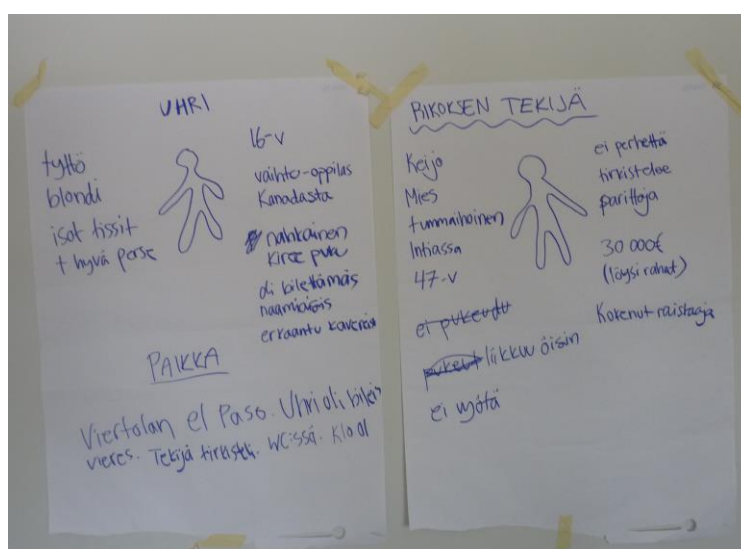 UHRI
tyttö
blondi
isot tissit
+ hyvä perse
16-v
vaihto-oppilas
Kanadasta
nahkainen
kireä puku
oli bilettämäs
naamiaisis
erkaantu kavereist
PAIKKA
Viertolan el Paso. Uhri oli bileis
vieres. Tekijä tirkisteli. WC:ssä.
RIKOKSEN TEKIJÄ
Keijo
Mies
tummaihoinen
Intiassa
47-v
ei pukeudu
liikkuu öisin
ei
ei perhettä
tirkistelee
parittaja
30 000€
(löysi rahat)
Kokenut raiskaaja